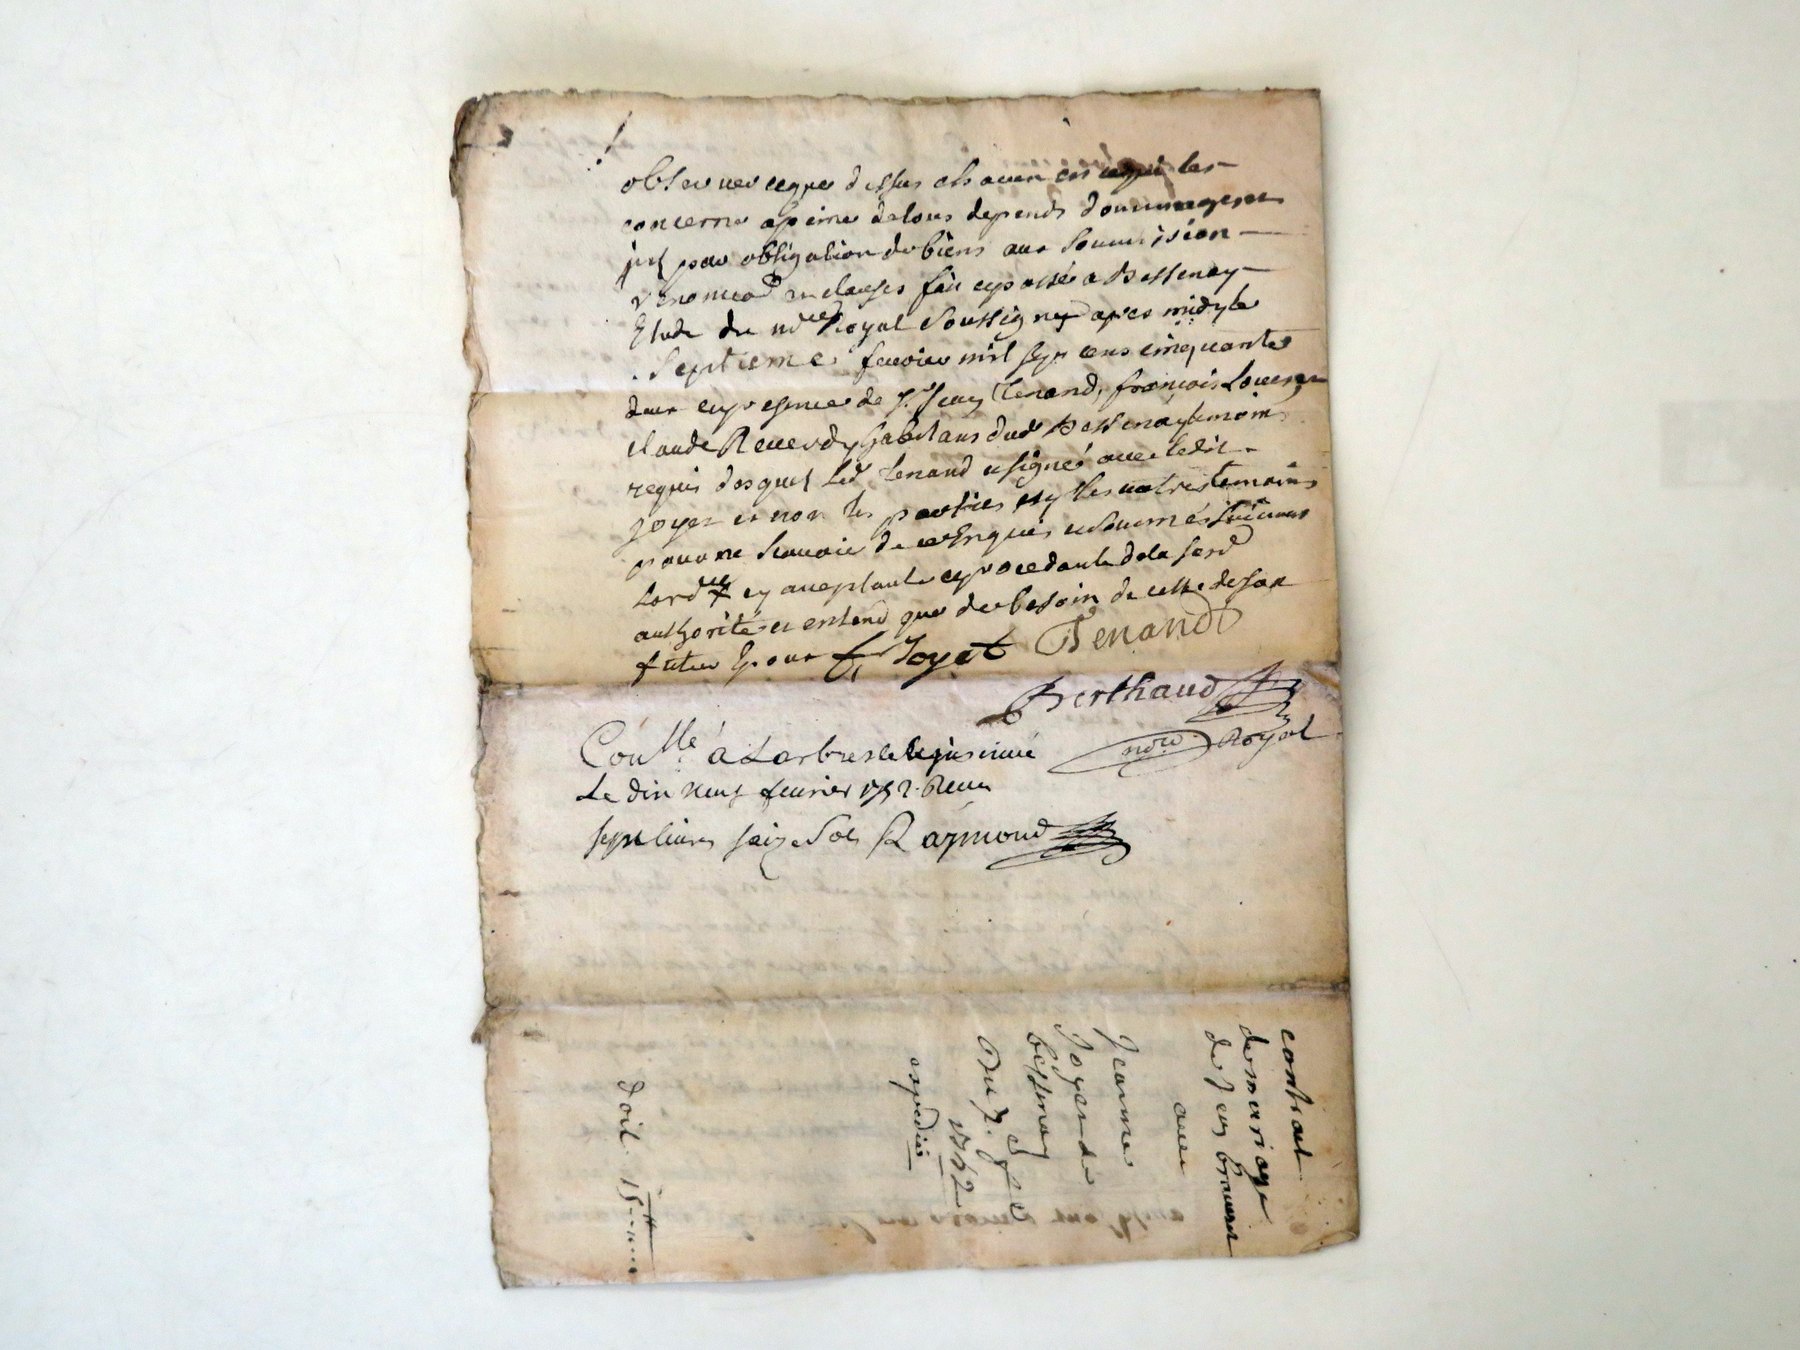 observer ceque dessus chacun en ce qui les
concerne apeine de tous depends dommages
jnt par obligation de biens aux Soumission
renonciaõn clauses fait e passé a Bessenay
Etude du no.re Royal Soussigné apres midy le
Septieme fevrier mil sept cens cinquante
deux en presence de Sr. Jean Tenand, françois
claude Reverdy habitans dud Bessenay temoins
requis desquels Led Tenand a signé avec ledit
joyet et non les parties ny les autres temoins
pour ne scavoir de ce Enquis et Sommés Suivant
Lord.ce et
authorité et entend que de besoin de celle de son
futur Epoux Joyet Tenand
Berthaud
no.re Royal
Con.lle a Larbresle
Le dix neuf fevrier 1752. Receu
sept livres saize Sols Raymond
contract
de mariage
de Jean
avec
Jeanne
Joyet de
bessenay
Du 7. fe
1752
expedié
doit. 15